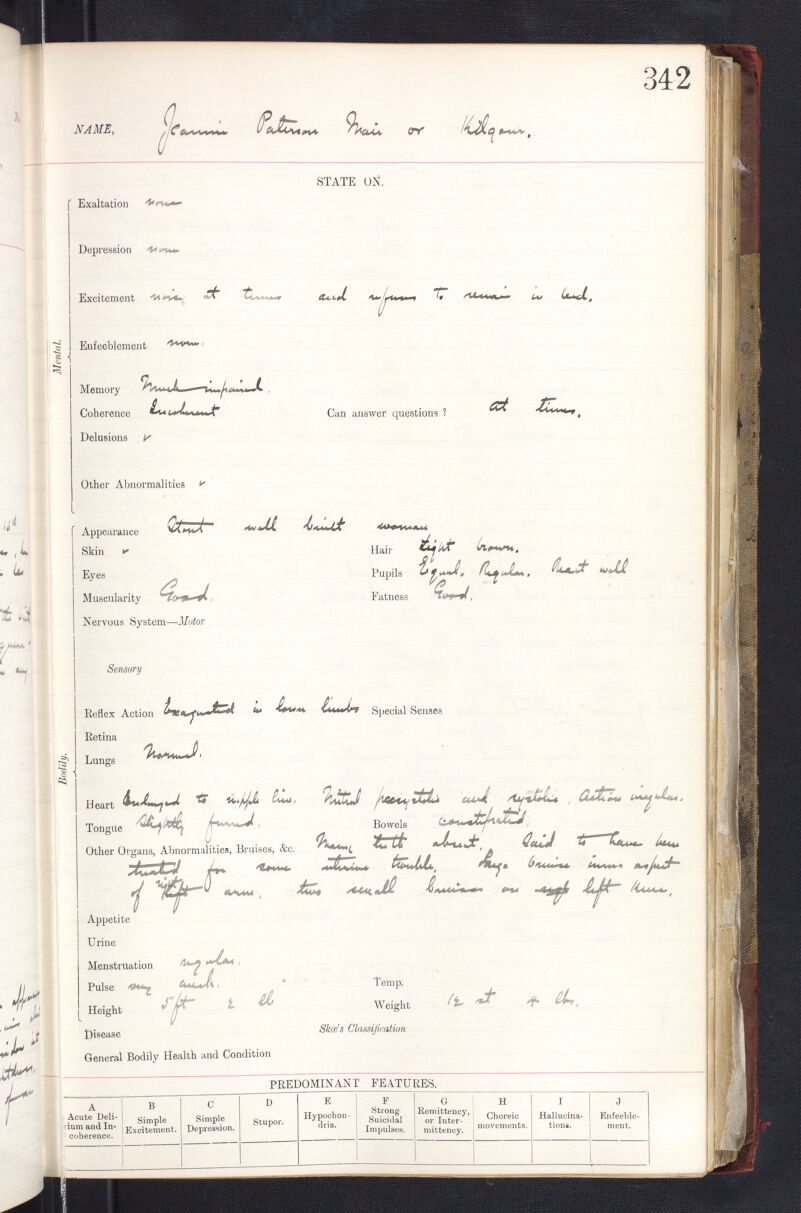 342
NAME, Jeannie Paterson Mair or Kilgour.
STATE ON.
Mental.
Exaltation none
Depression none
Excitement noisy at times and refuses to remain in bed.
Enfeeblement none.
Memory Much impaired.
Coherence Incoherent Can answer questions ? at times.
Delusions
Other Abnormalities
Bodily.
Appearance Stout well built woman
Skin Hair Light brown.
Eyes Pupils Equal. Regular. React well
Muscularity Good. Fatness Good.
Nervous System—Motor
Sensory
Reflex Action Exaggerated in lower limbs Special Senses
Retina
Lungs Normal.
Heart Enlarged to nipple line. Mitral presystolic and systolic. Action irregular.
Tongue Slightly furred. Bowels constipated.
Other Organs, Abnormalities, Bruises, &c. Many teeth absent. Said to have been
treated for some uterine trouble. Large bruise inner aspect
of right left arm, two small bruises on left knee.
Appetite
Urine
Menstruation regular.
Pulse very Temp.
Height 5 ft 2 Weight 12 st 4 lbs.
Disease Skae's Classification
General Bodily Health and Condition
PREDOMINANT FEATURES.
A B C D E F G H I J
Acute Deli- Simple Simple Stupor. Hypochon- Strong Remittency, Choreic Hallucina- Enfeeble-
ium and In- Excitement. Depression. dria. Suicidal or Inter- movements. tions. ment.
coherence. Impulses. mittency.